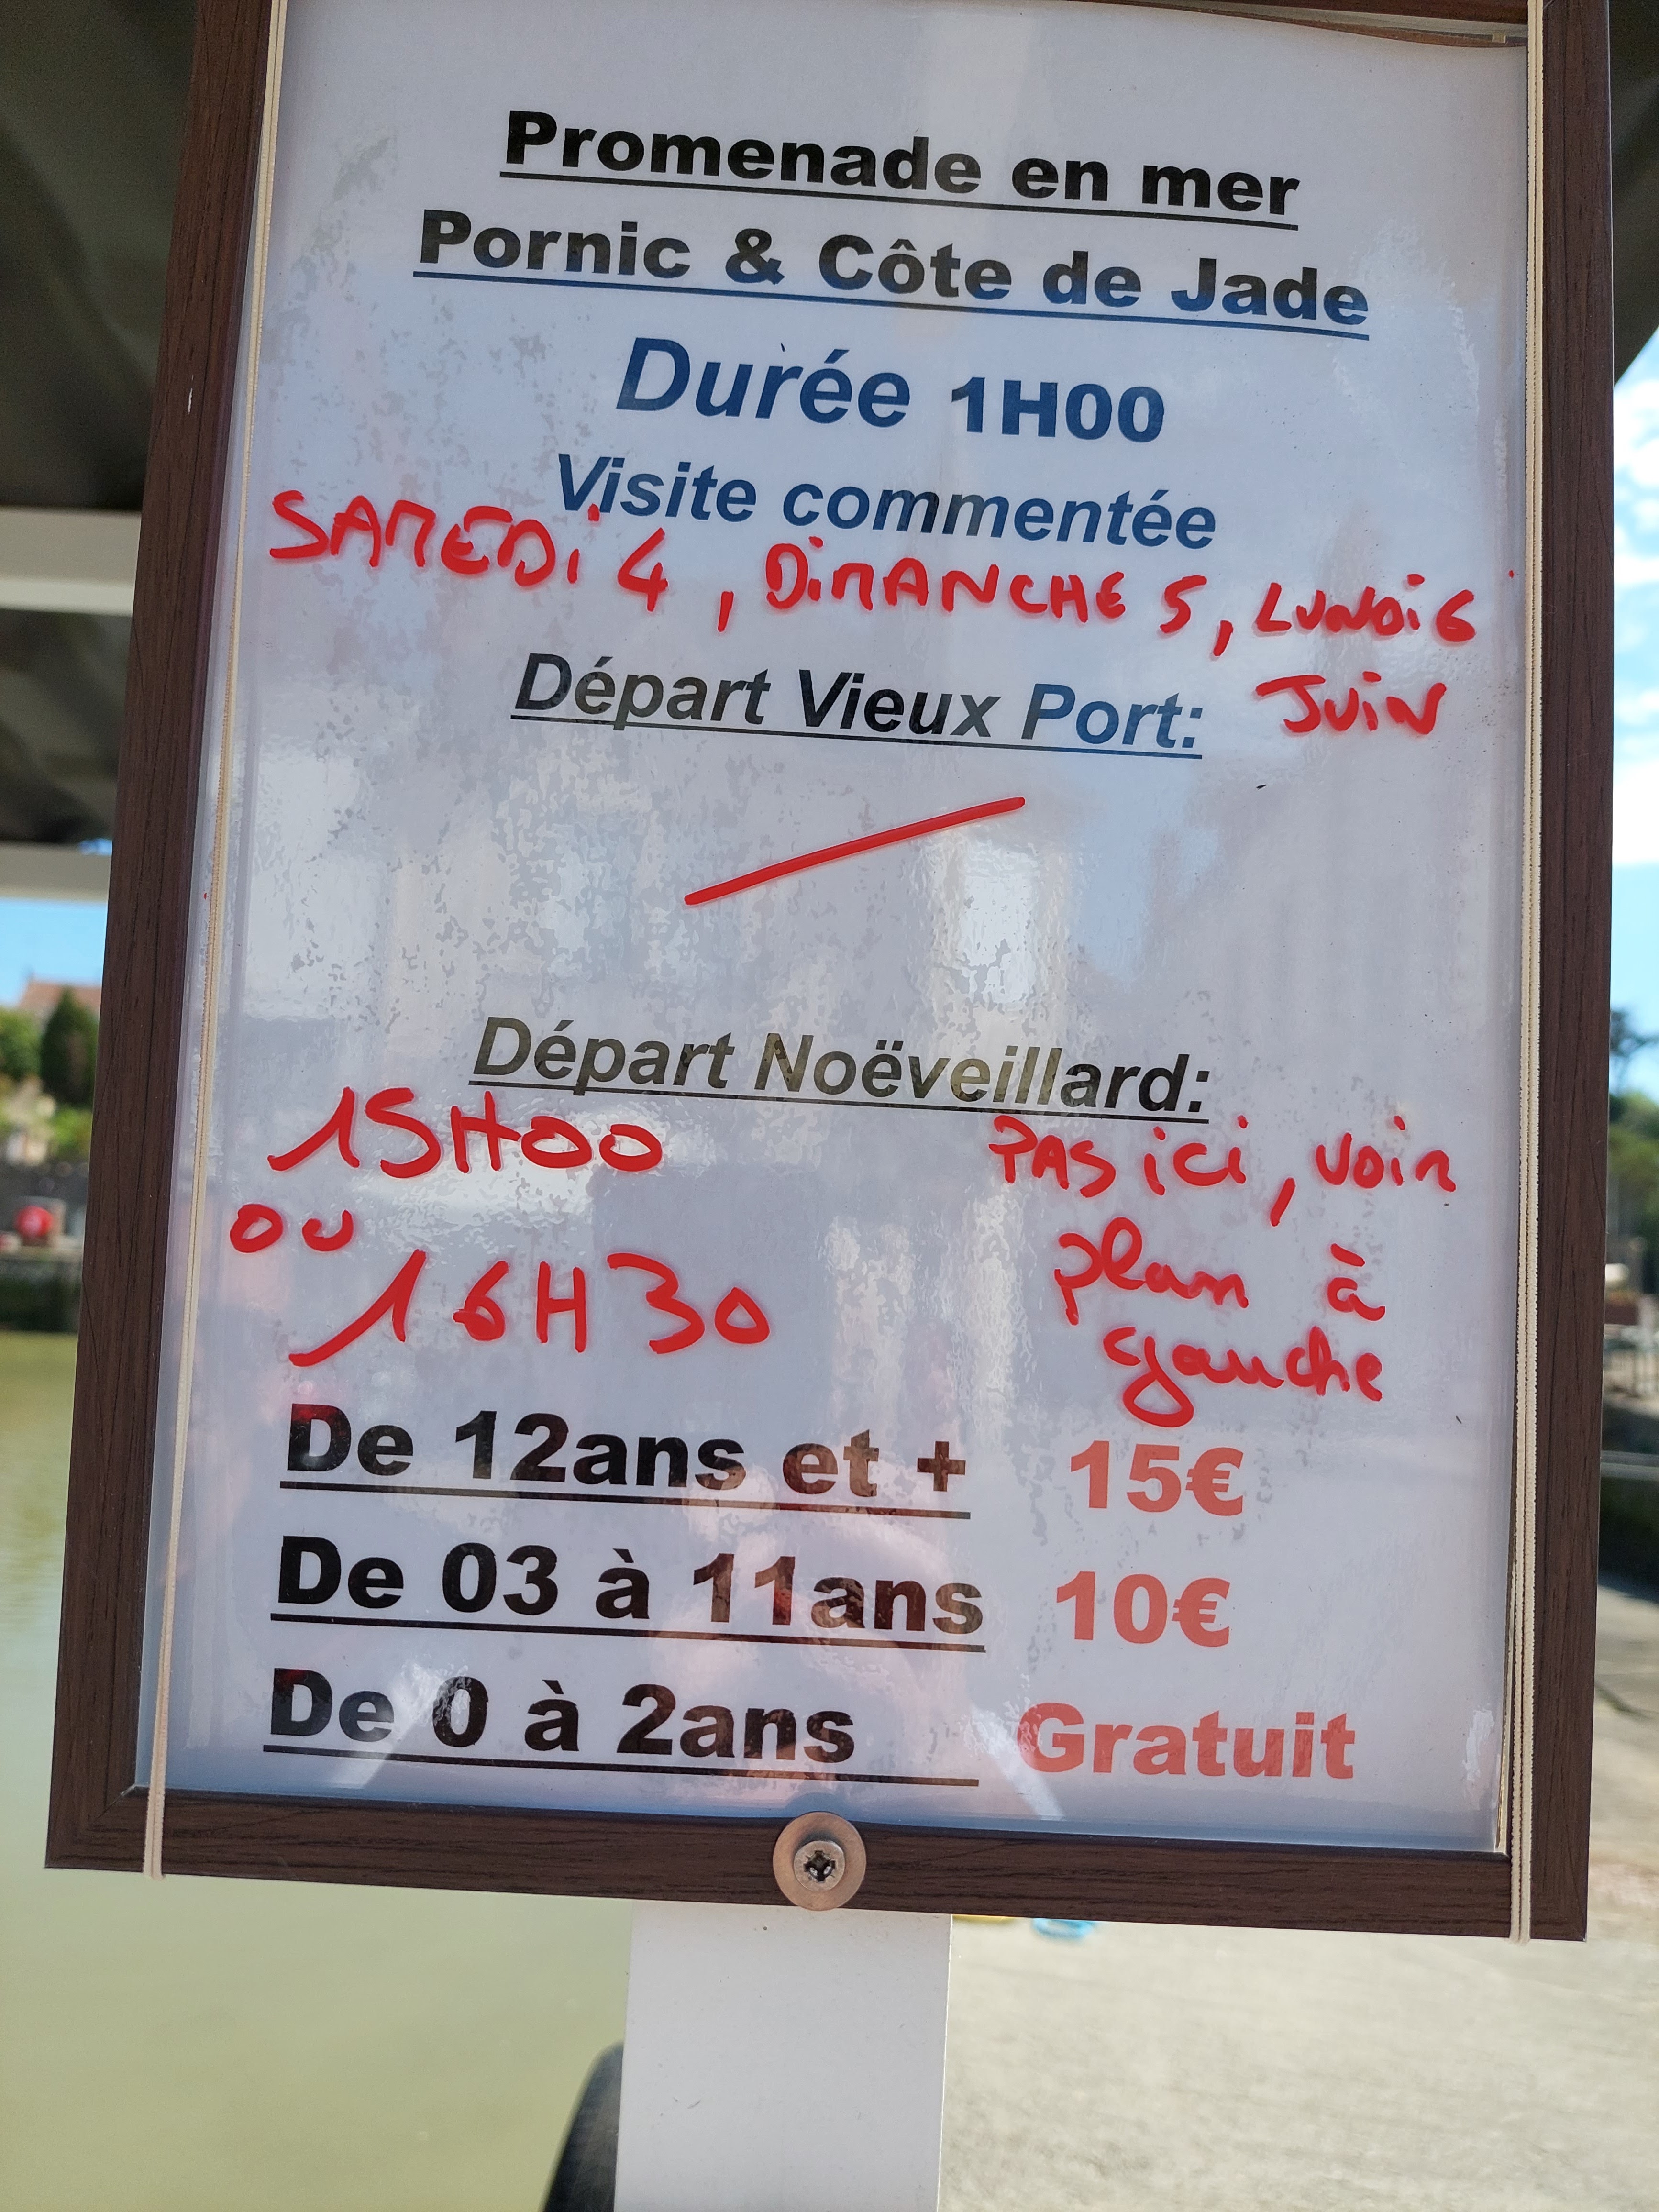 Promenade en mer
Pornic & Côte de Jade
Durée 1H00
Visite commentée
SAMEDi 4, DiMANCHE 5, LUNDi 6
JUiN
Départ Vieux Port:
Départ Noëveillard:
15H00
PAS ici, voir
ou
plan à
16H30
gauche
De 12ans et + 15€
De 03 à 11ans 10€
De 0 à 2ans Gratuit